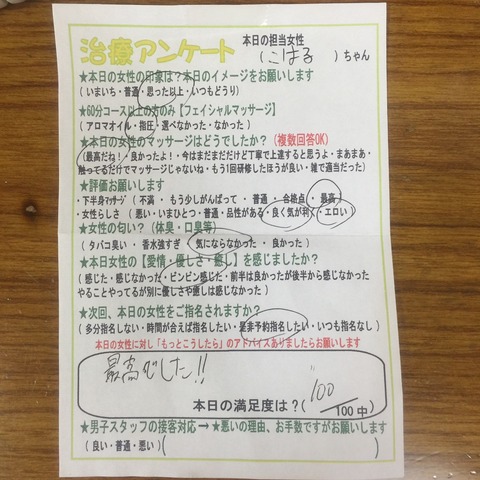 治療アンケート 本日の担当女性
(こはる )ちゃん
★本日の女性の印象は?本日のイメージをお願いします
(いまいち・普通・思った以上・いつもどうり)
★60分コース以上の方のみ【フェイシャルマッサージ】
(アロマオイル・指圧・選べなかった・なかった)
★本日の女性のマッサージはどうでしたか?(複数回答OK)
(最高だね!・良かったよ!・今はまだまだだけど丁寧で上達すると思うよ・まあまあ・
触ってるだけでマッサージじゃないね・もう1回研修したほうが良い・雑で適当だった)
★評価お願いします
・下半身マッサージ (不満 ・もう少しがんばって ・普通 ・合格点 ・最高)
・女性らしさ (悪い・いまひとつ・普通・品性がある・良く気が利く・エロい)
★女性の匂い?(体臭・口臭等)
(タバコ臭い ・ 香水強すぎ ・ 気にならなかった ・ 良かった)
★本日女性の【愛情・優しさ・癒し】を感じましたか?
(感じた・感じなかった・ビンビン感じた・前半は良かったが後半から感じなかった
やることやってるが別に優しさや癒しは感じなかった)
★次回、本日の女性をご指名されますか?
(多分指名しない・時間が合えば指名したい・是非予約指名したい・いつも指名なし)
本日の女性に対し「もっとこうしたら」のアドバイスありましたらお願いします
最高でした!!
本日の満足度は?( 100/100中)
★男子スタッフの接客対応→★悪いの理由、お手数ですがお願いします
(良い・普通・悪い)( )